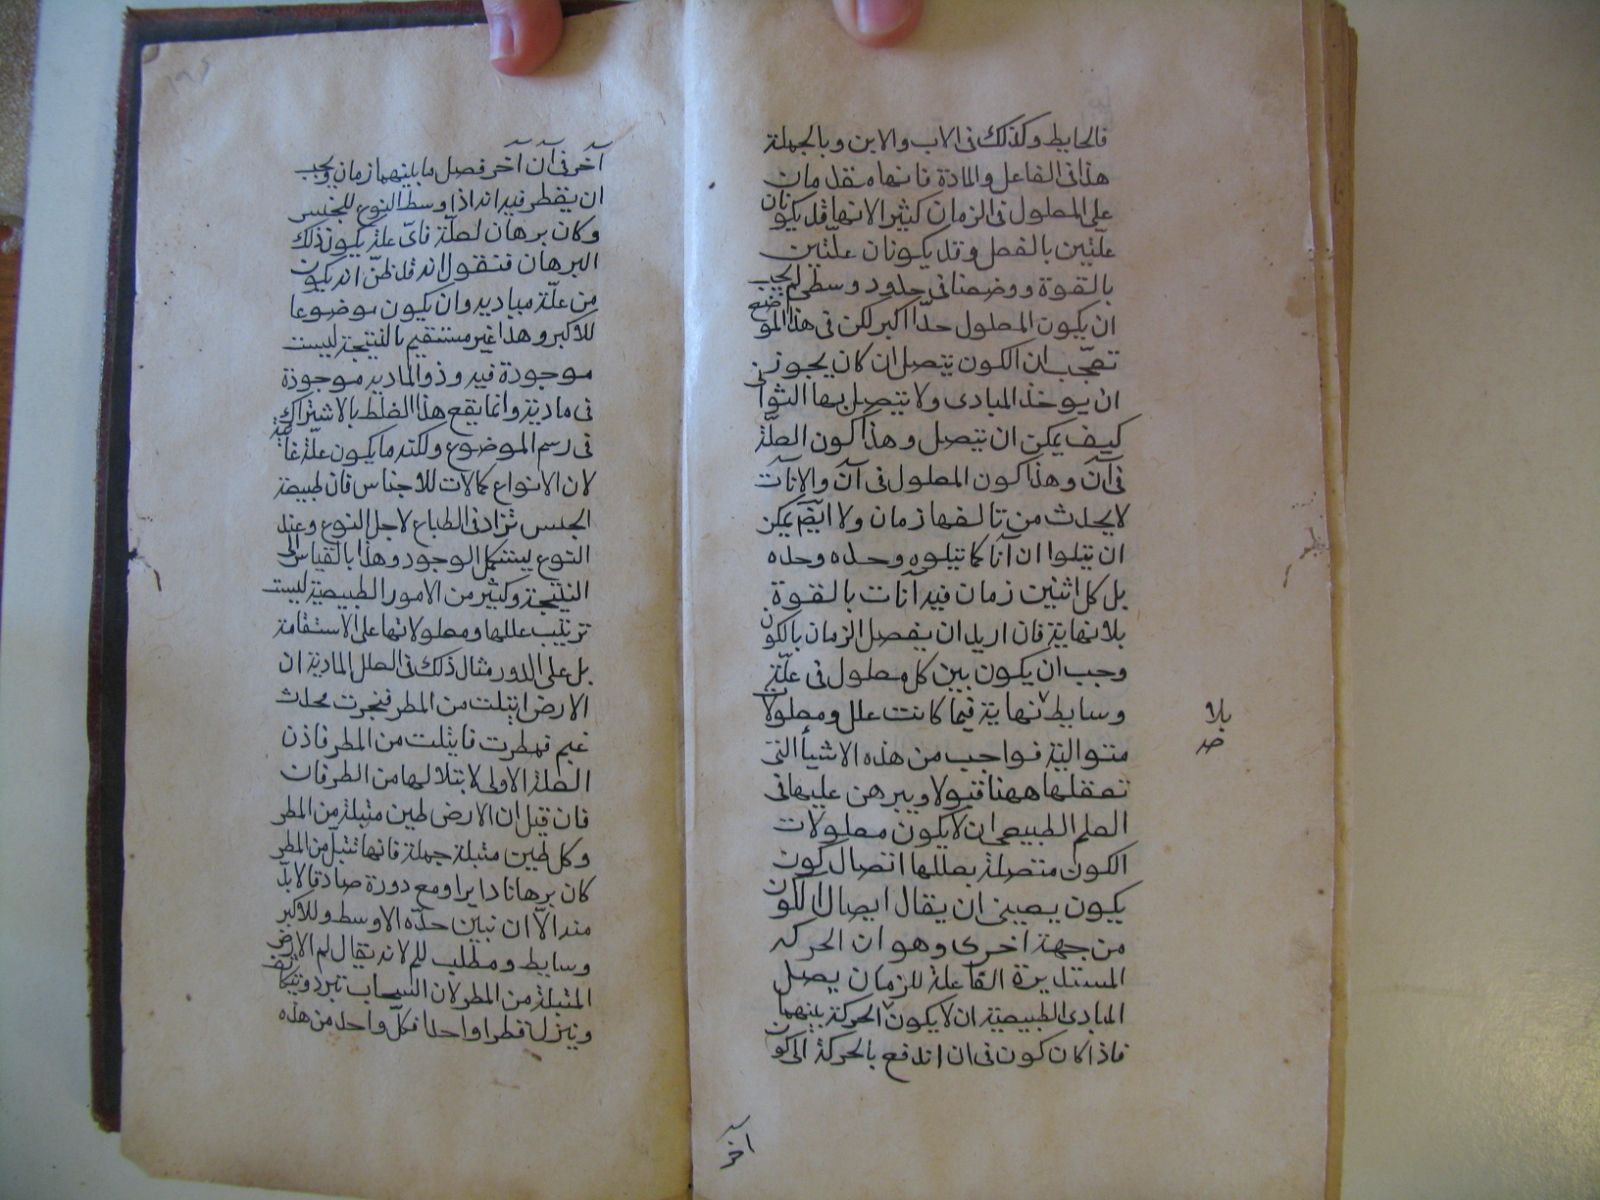 فالحايط وكذلك فى الاب والابن وبالجملة
هذا فى الفاعل والمادة فانها متقدمان
على المعلول فى الزمان كثيرا لانها قد يكونان
علّتين بالفعل وقد يكونان علّتين
بالقوة ووضعنا فى حدود وسطى لم يجب
ان يكون المعلول حدّا اكبر لكن فى هذا الموضع
تعجّب ان الكون يتصل ان كان يجوز
ان يوخذ المبادى ولا يتصل بها الثوانى
كيف يمكن ان تتصل وهذا كون العلّة
فى آن وهذا كون المعلول فى آن والآنات
لا يحدث من تالفها زمان ولا ايضم يمكن
ان يتلوا ان آنا كما يتلوه وحده وحده
بل كل اثنين زمان فيه آنات بالقوة
بلا نهاية فان اريد ان يفصل الزمان بالكون
وجب ان يكون بين كل معلول فى علّة
وسايط نهاية فيما كانت علل ومعلولات
بلا
صح
متوالية فواجب من هذه الاشيأ التى
تعقلها ههنا قبولا ويبرهن عليها فى
العلم الطبيعى ان لا يكون معلولات
الكون متصلة بعللها اتصال كون
يكون يعيبنى ان يقال ايصال الكون
من جهة اخرى وهو ان الحركه
المستديرة الفاعلة للزمان يصل
المبادى الطبيعية ان لا يكون الحركة بينهما
فاذا كان كون فى ان اندفع بالحركة الى كون
آخر
آخر فى آن آخر فصل ما بينهما زمان ويجب
ان يقطر فيه انه اذا وسط النوع للجنس
وكان برهان لعلّة فاىّ علة يكون ذلك
البرهان فنقول لانه قد ظنّ انه يكون
من علّة مباديه وان يكون موضوعا
للاكبر وهذا غير مستقيم بالنتيجة ليست
موجودة فيه وذو الماديه موجودة
فى مادية وانما يقع هذا الغلط بالاشتراك
فى رسم الموضوع ولكنه ما يكون علّة غامّة
لان الانواع كمالات للاجناس فان طبيعة
الجنس تراد فى الطباع لاجل النوع وعند
النوع يستكمل الوجود وهذا بالقياس الى
النتيجة وكثير من الامور الطبيعية ليست
ترتيب عللها ومعلولاتها على الاستقامة
بل على الدور مثال ذلك فى العلل المادية ان
الارض ابتلت من المطر فبخرت محدث
غيم فمطرت فابتلت من المطر فاذن
العلة الاولى لابتلالها من الطرفان
فان قيل ان الارض طين مبتلة من المطر
وكل طين مبتلة جملة فانها تبتل من المطر
كان برهانا دايرا ومع دورة صادقا لابدّ
منه الّا ان نبين حدّه الاوسط وللاكبر
وسايط ومطلب للم لانه يقال لم الارض
المبتلة من المطر لان السحاب تبرد وتتكاثف
وينزل قطرا واحدا فكلّ واحد من هذه